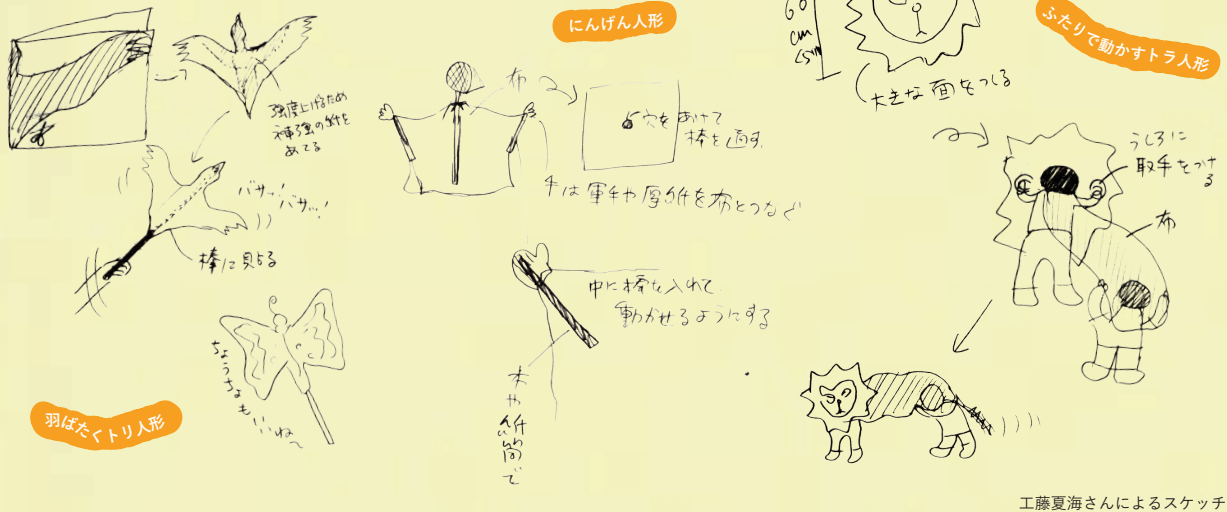 強度上げるため
補強の紙を
あてる
バサッ!
バサッ…!
棒に貼る
ちょうちょもいいね〜
羽ばたくトリ人形
にんげん人形
布
穴をあけて
棒を通す。
手は軍手や厚紙を布とつなぐ
中に棒を入れて
動かせるようにする
木や紙筒で
ふたりで動かすトラ人形
60
cm
くらい
大きな面をつくる
うしろに
取手をつけ
る
布
工藤夏海さんによるスケッチ